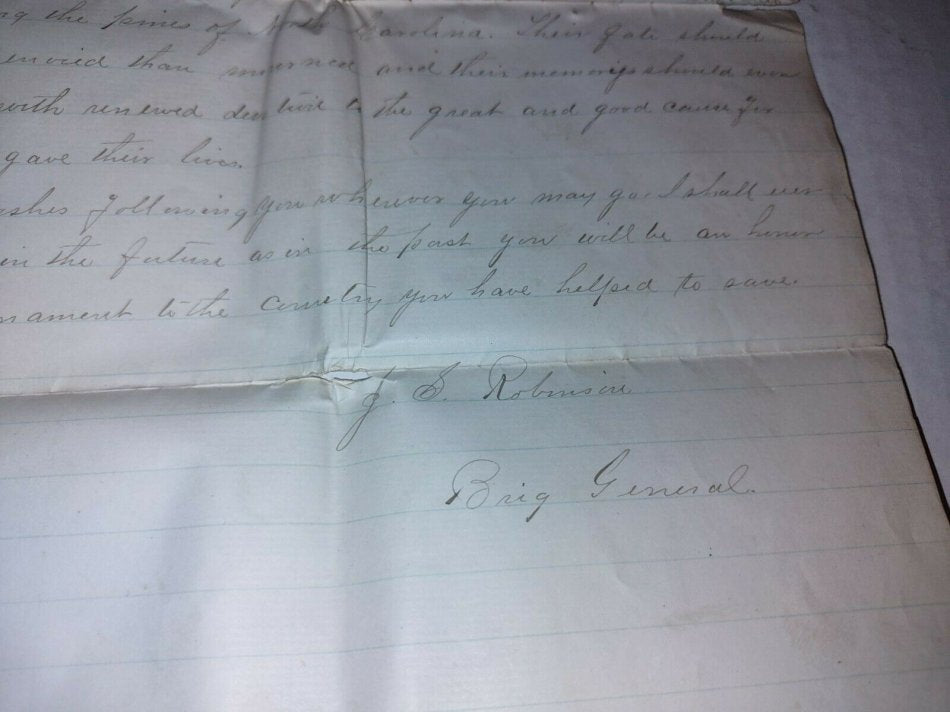 ng the pines of North Carolina. Their fate should
envied than mourned and their memorys should ever
with renewed to the great and good cause for
gave their lives
ishes following you wherever you may go. I shall ever
in the future as in the past you will be an honor
nament to the country you have helped to save.
J. S. Robinson
Brig General.